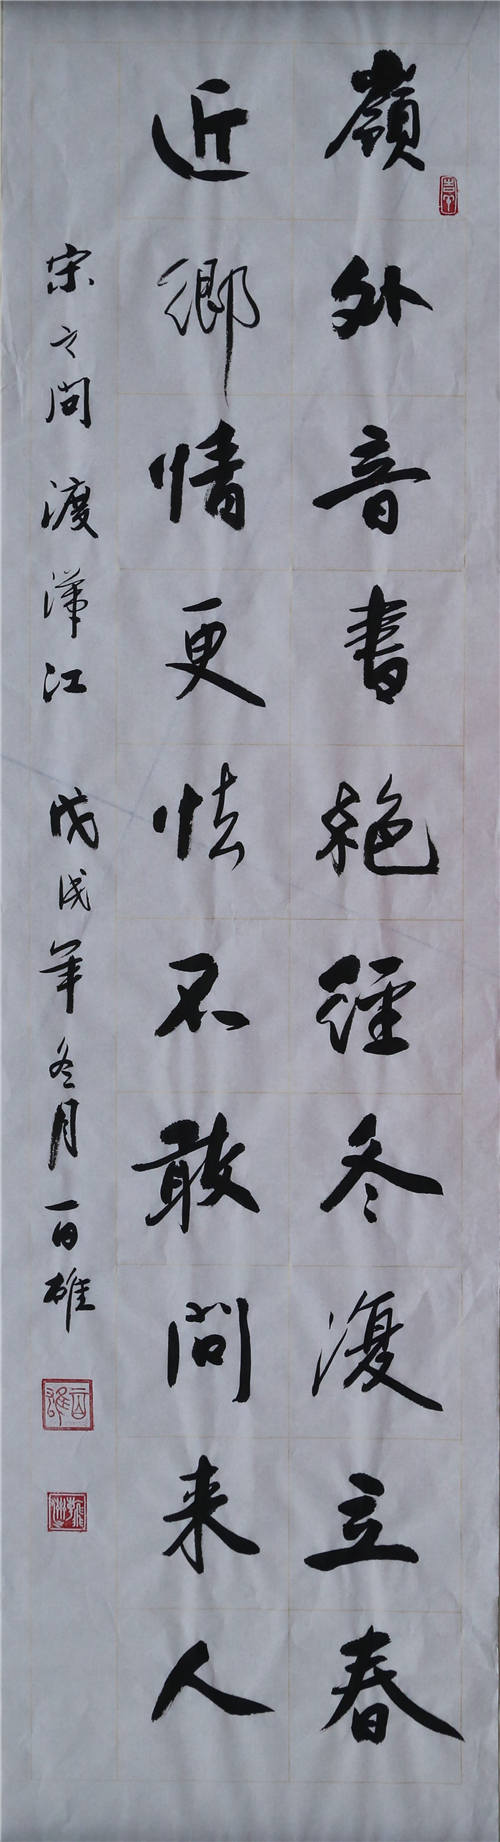 嶺外音書絶經冬復立春
近鄉情更怯不敢問来人
宋之問 渡漢江 戊戌年冬月 百雄